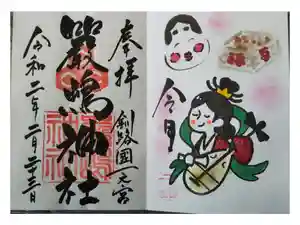 奉拝
釧路國一之宮
嚴嶋神社
令和二年二月二十三日
今月